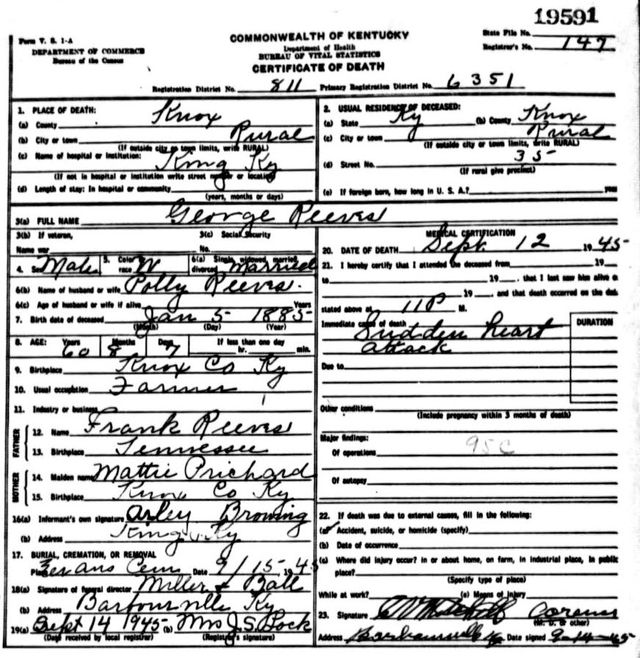 19591
Form V. S. 1-A
DEPARTMENT OF COMMERCE
Bureau of the Census
COMMONWEALTH OF KENTUCKY
Department of Health
BUREAU OF VITAL STATISTICS
CERTIFICATE OF DEATH
State File No.
Registrar's No. 147
Registration District No. 811 Primary Registration District No. 6351
1. PLACE OF DEATH:
(a) County Knox
(b) City or town Rural
(If outside city or town limits, write RURAL)
(c) Name of hospital or institution: King Ky
(If not in hospital or institution write street number or location)
(d) Length of stay: In hospital or community
(years, months or days)
2. USUAL RESIDENCE OF DECEASED:
(a) State Ky (b) County Knox
(c) City or town Rural
(If outside city or town limits, write RURAL)
(d) Street No. 35
(If rural give precinct)
(e) If foreign born, how long in U. S. A.? years
3(a) FULL NAME George Reeves
3(b) If veteran, Name war
3(c) Social Security No.
4. Sex Male 5. Color or race W 6(a) Single, widowed, married, divorced Married
6(b) Name of husband or wife Polly Reeves.
6(c) Age of husband or wife if alive Years
7. Birth date of deceased Jan 5 1885
(Month) (Day) (Year)
8. AGE: Years 60 Months 8 Days 7 If less than one day hr. min.
9. Birthplace Knox Co Ky
10. Usual occupation Farmer
11. Industry or business
FATHER
12. Name Frank Reeves
13. Birthplace Tennessee
MOTHER
14. Maiden name Mattie Prichard
15. Birthplace Knox Co Ky
16(a) Informant's own signature Arley Browing
(b) Address King Ky
17. BURIAL, CREMATION, OR REMOVAL
Place Evans Cem 9/15-45
18(a) Signature of funeral director Miller & Ball
(b) Address Barbourville Ky
19(a) Sept 14 1945 Mrs J S Lock
(Date received by local registrar) (Registrar's signature)
MEDICAL CERTIFICATION
20. DATE OF DEATH Sept 12 1945
21. I hereby certify that I attended the deceased from
19 , to 19 , that I last saw him alive on
19 , and that death occurred on the date
stated above at 11 P M.
Immediate cause of death DURATION
Sudden heart
attack
Due to
Other conditions
(Include pregnancy within 3 months of death)
Major findings:
Of operations 95C
Of autopsy
22. If death was due to external causes, fill in the following:
(a) Accident, suicide, or homicide (specify)
(b) Date of occurrence
(c) Where did injury occur? in or about home, on farm, in industrial place, in public
place?
(Specify type of place)
While at work? (e) Means of injury
23. Signature Coroner
(M. D. or other)
Address Barbourville Ky Date signed 9-14-45